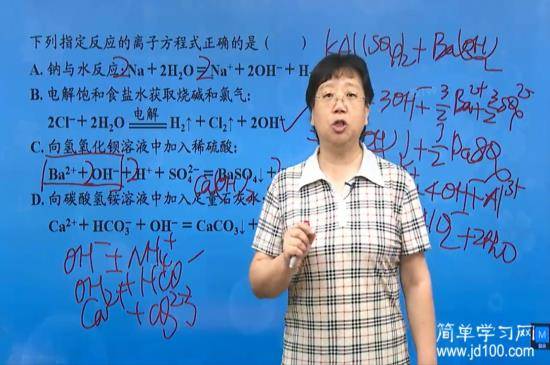 下列指定反应的离子方程式正确的是( )
A. 钠与水反应 2Na+2H₂O=2Na⁺+2OH⁻+H
B. 电解饱和食盐水获取烧碱和氯气:
2Cl⁻+2H₂O 电解 H₂↑+Cl₂↑+2OH⁻ ✓
C. 向氢氧化钡溶液中加入稀硫酸:
Ba²⁺+2OH⁻+2H⁺+SO₄²⁻=BaSO₄↓+2
D. 向碳酸氢铵溶液中加入足量石灰水:
Ca(OH)₂
Ca²⁺+HCO₃⁻+OH⁻=CaCO₃↓+
OH⁻+NH₄⁺
OH⁻+HCO₃⁻
Ca²⁺+CO₃²⁻
KAl(SO₄)₂+Ba(OH)₂
3OH⁻+3/2Ba²⁺+3/2SO₄²⁻
3/2BaSO₄
4OH⁻+Al³⁺
+2H₂O
简单学习网
www.jd100.com